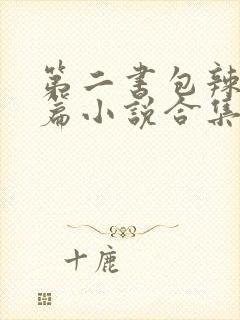 第二书包辣
篇小说合集
十鹿